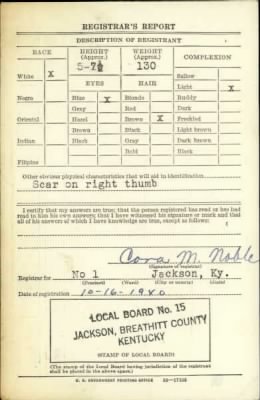 REGISTRAR'S REPORT
DESCRIPTION OF REGISTRANT
RACE HEIGHT (Approx.) WEIGHT (Approx.) COMPLEXION
5-7½ 130
White X Sallow
EYES HAIR Light X
Negro Blue X Blonde Ruddy
Gray Red Dark
Oriental Hazel Brown X Freckled
Brown Black Light brown
Indian Black Gray Dark brown
Bald Black
Filipino
Other obvious physical characteristics that will aid in identification
Scar on right thumb
I certify that my answers are true; that the person registered has read or has had read to him his own answers; that I have witnessed his signature or mark and that all of his answers of which I have knowledge are true, except as follows:
Cora M. Noble
(Signature of registrar)
Registrar for No 1 Jackson, Ky.
(Precinct) (Ward) (City or county) (State)
Date of registration 10-16-1940
LOCAL BOARD No. 15
JACKSON, BREATHITT COUNTY
KENTUCKY
(STAMP OF LOCAL BOARD)
(The stamp of the Local Board having jurisdiction of the registrant shall be placed in the above space.)
U. S. GOVERNMENT PRINTING OFFICE